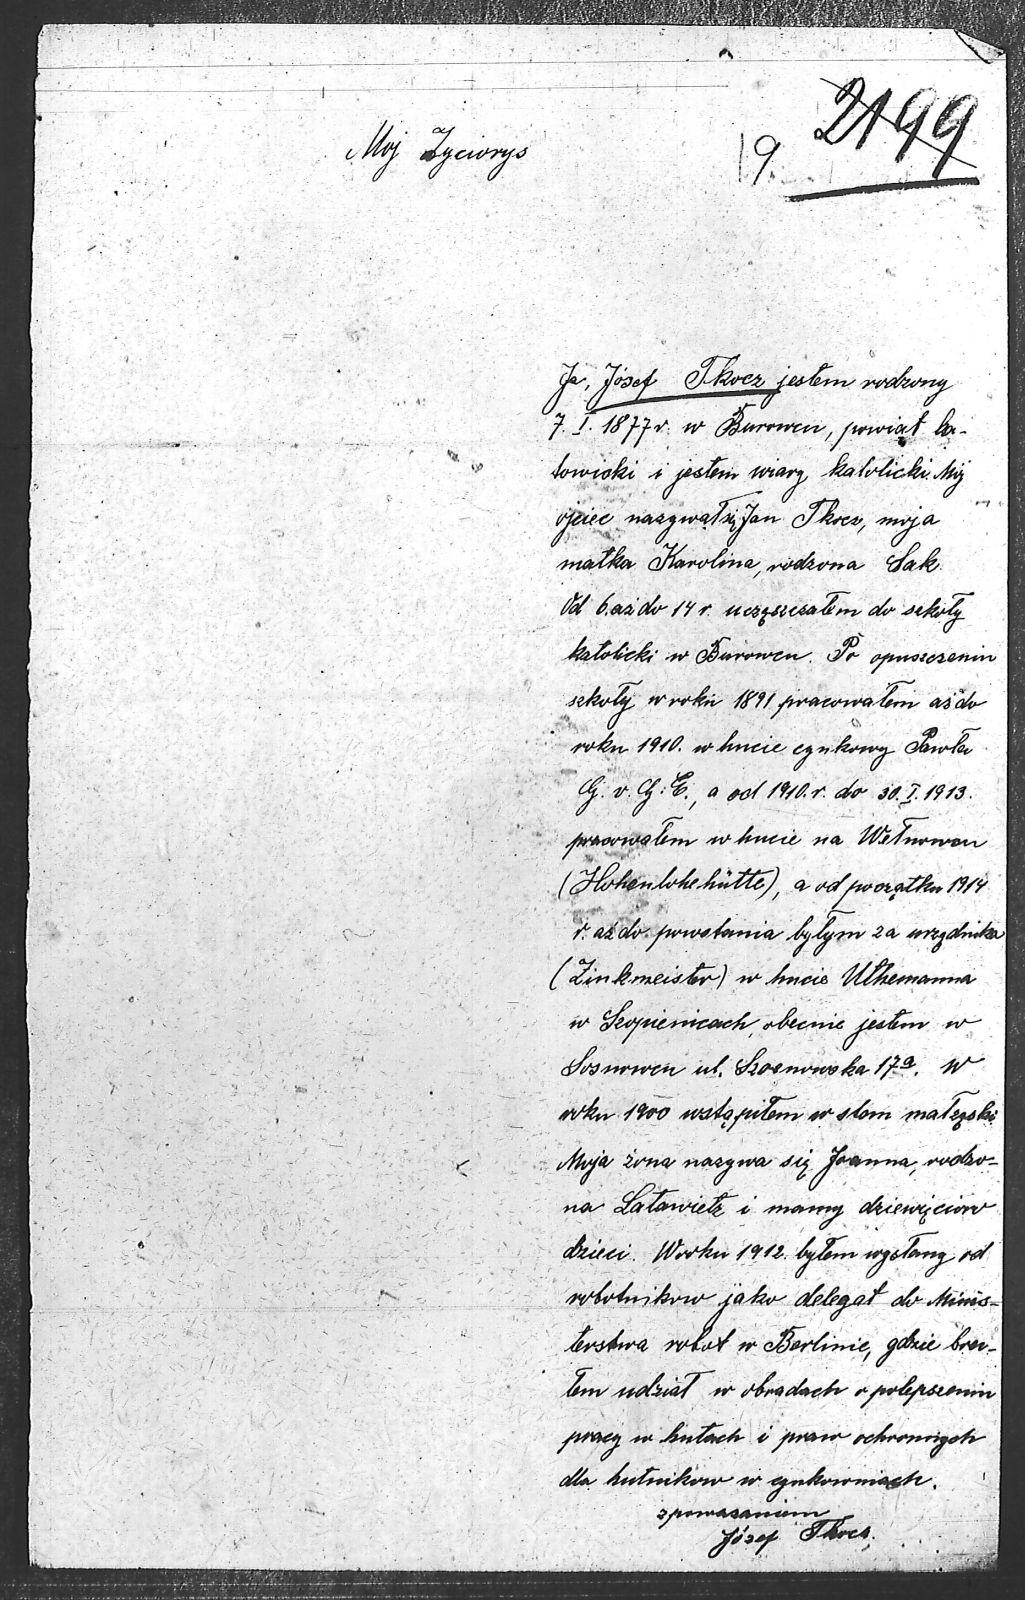 2199
19.
Moj Życiorys
Ja, Józef Tkocz jestem rodzony
7. I. 1877 r. w Burowcu, powiat ka-
towicki i jestem wiary katolicki. Mój
ojciec nazywał się Jan Tkocz, moja
matka Karolina, rodzona Sak.
Od 6. aż do 14 r. uczęszczałem do szkoły
katolicki w Burowcu. Po opuszczeniu
szkoły w roku 1891 pracowałem aż do
roku 1910. w hucie cynkowy Pawła
G. v. G. E., a od 1910. r. do 30. I. 1913.
pracowałem w hucie na Wełnowcu
(Hohenlohehütte), a od początku 1914
r. aż do powstania byłym za urzędnika
(Zinkmeister) w hucie Uthemanna
w Szopienicach, obecnie jestem w
Sosnowcu ul. Szosnowska 17a. W
roku 1900 wstąpiłem w stan małżęski
Moja żona nazywa się Joanna, rodzo-
na Latawietz i mamy dziewięcioro
dzieci. W roku 1912. byłem wysłany od
robotnikow jako delegat do Minis-
terstwa robot w Berlinie, gdzie bra-
łem udział w obradach o polepszeniu
pracy w hutach i praw ochronnych
dla hutnikow w cynkowniach.
z powazaniem
Józef Tkocz.